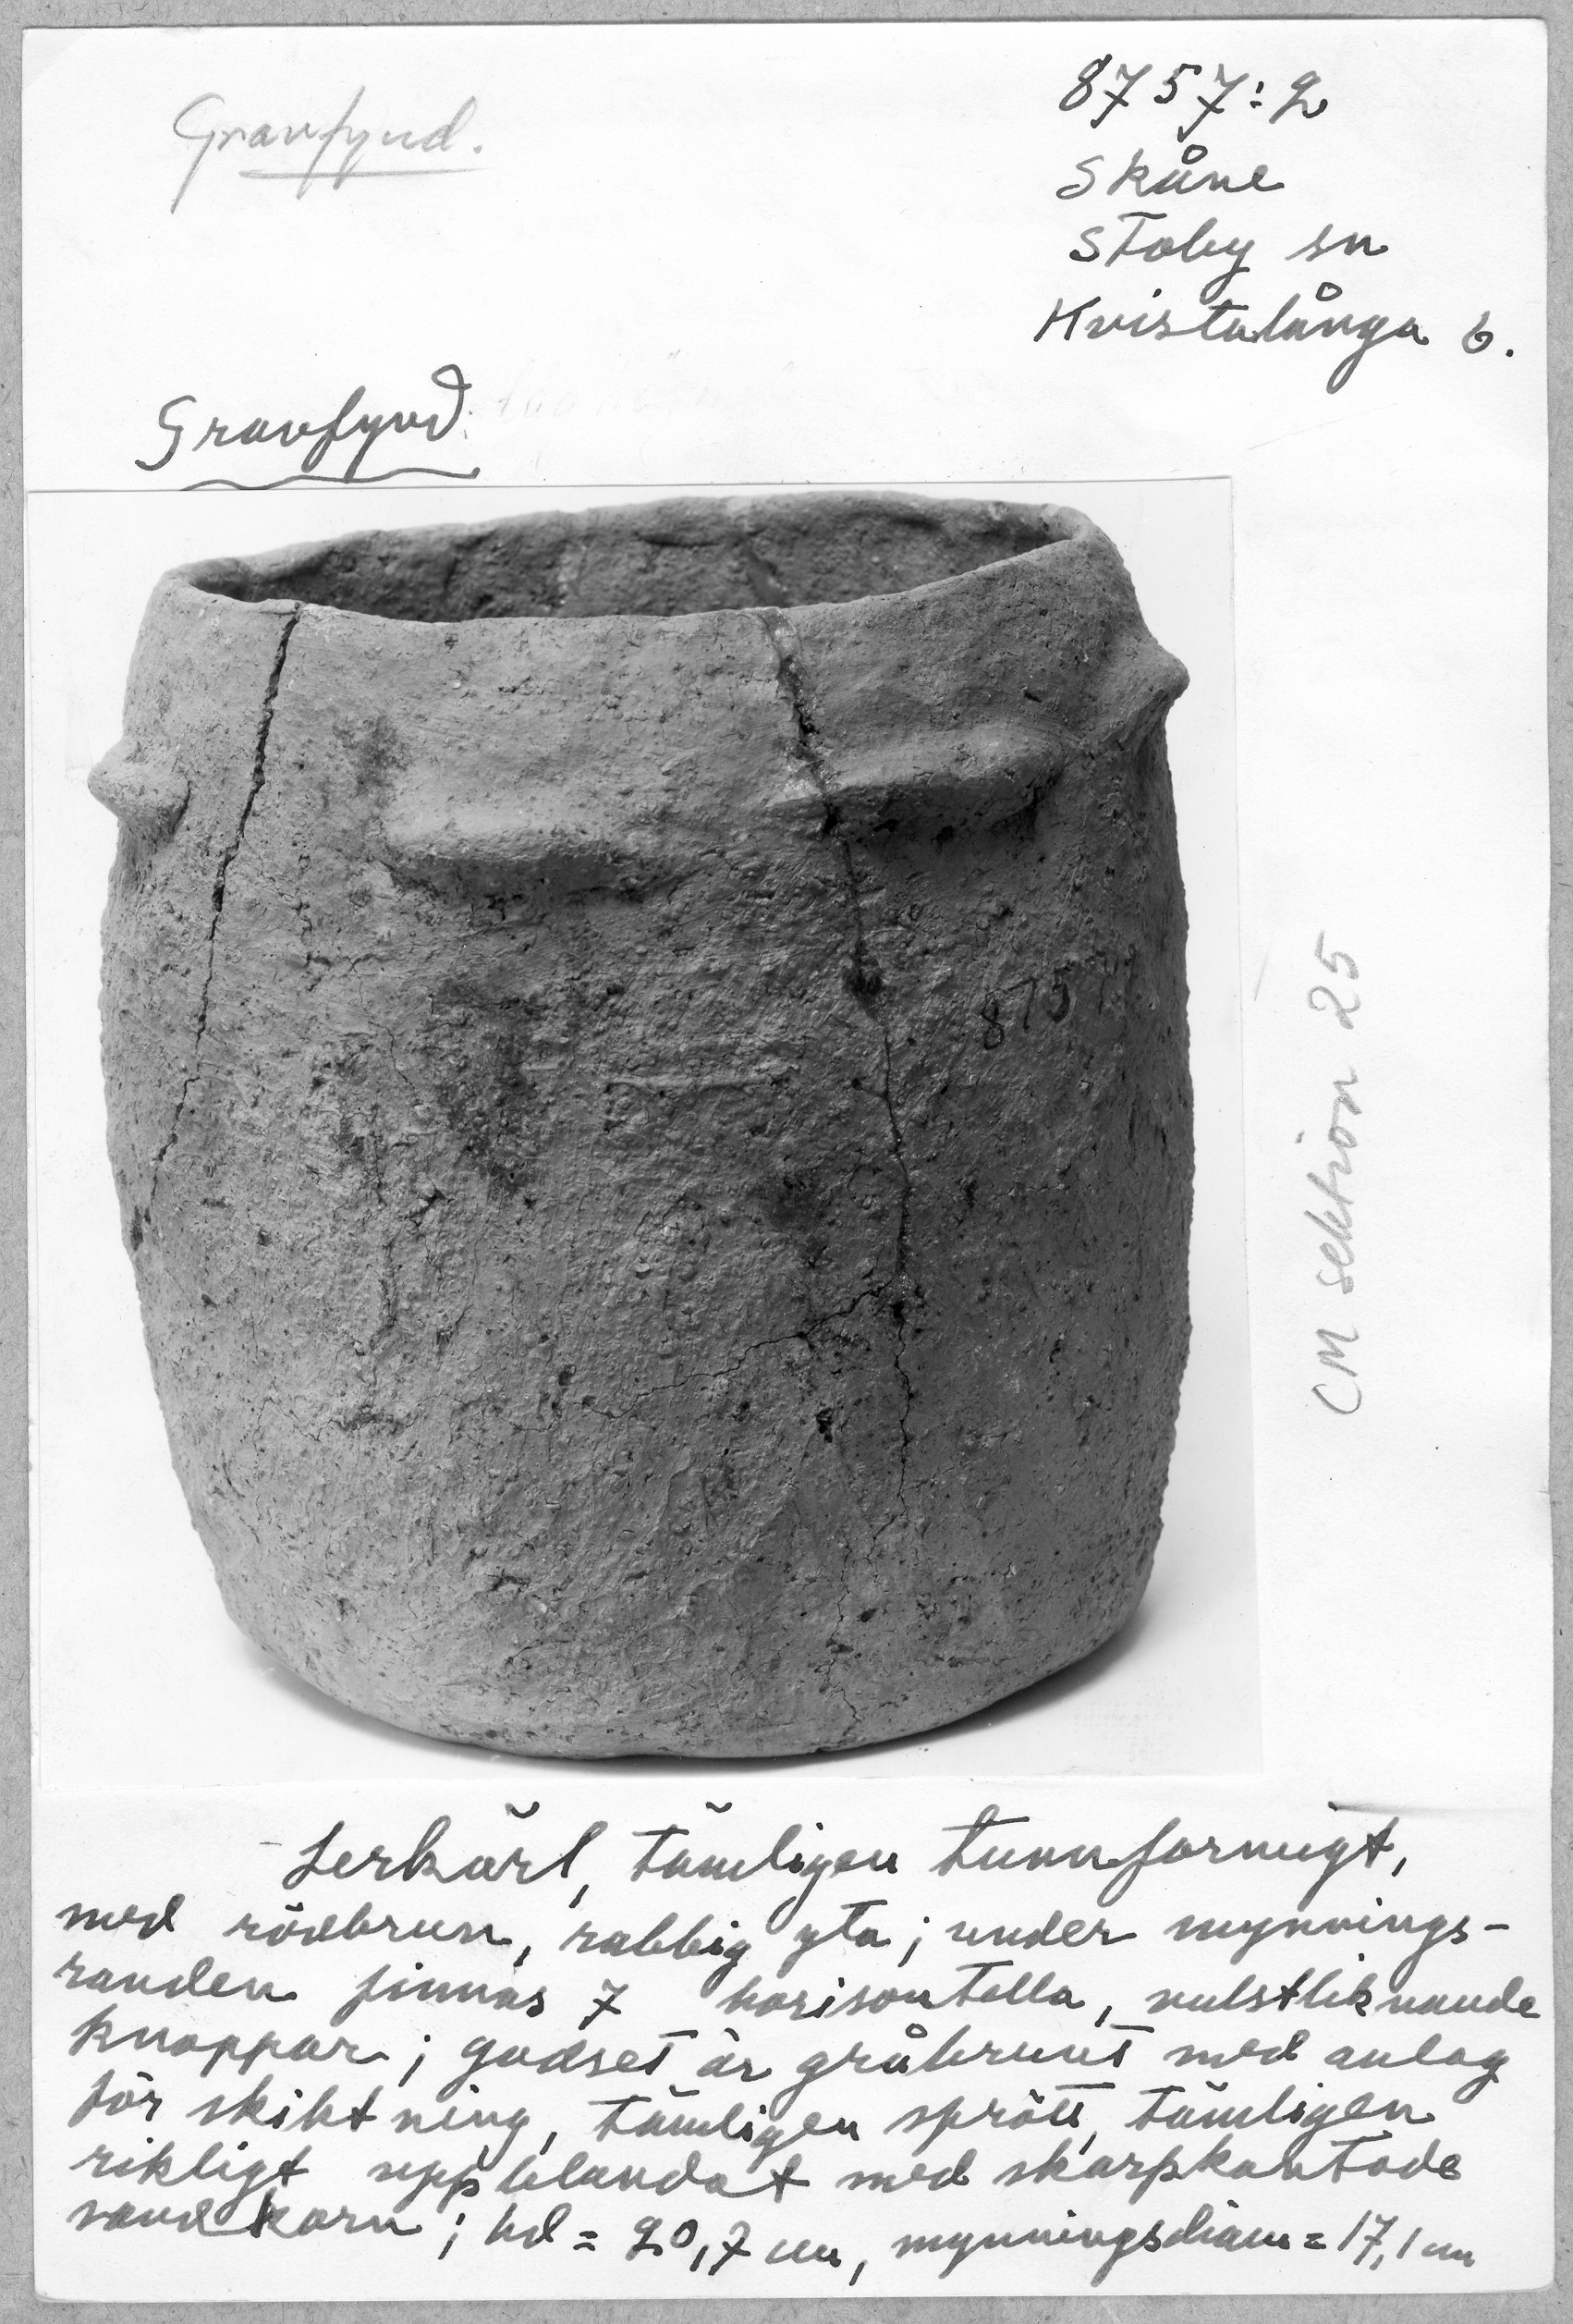 Gravfynd.
8757:2
Skåne
Stoby sn
Kvistalånga 6.
Gravfynd
8757
CM sektion 25
Lerkärl, tämligen tunnformigt,
med rödbrun, rabbig yta; under mynnings-
randen finnas 7 horisontella, vulstliknande
knoppar; godset är gråbrunt med anlag
för skiktning, tämligen sprött, tämligen
rikligt uppblandat med skarpkantade
sandkorn; hd = 20,7 cm, mynningsdiam = 17,1 cm